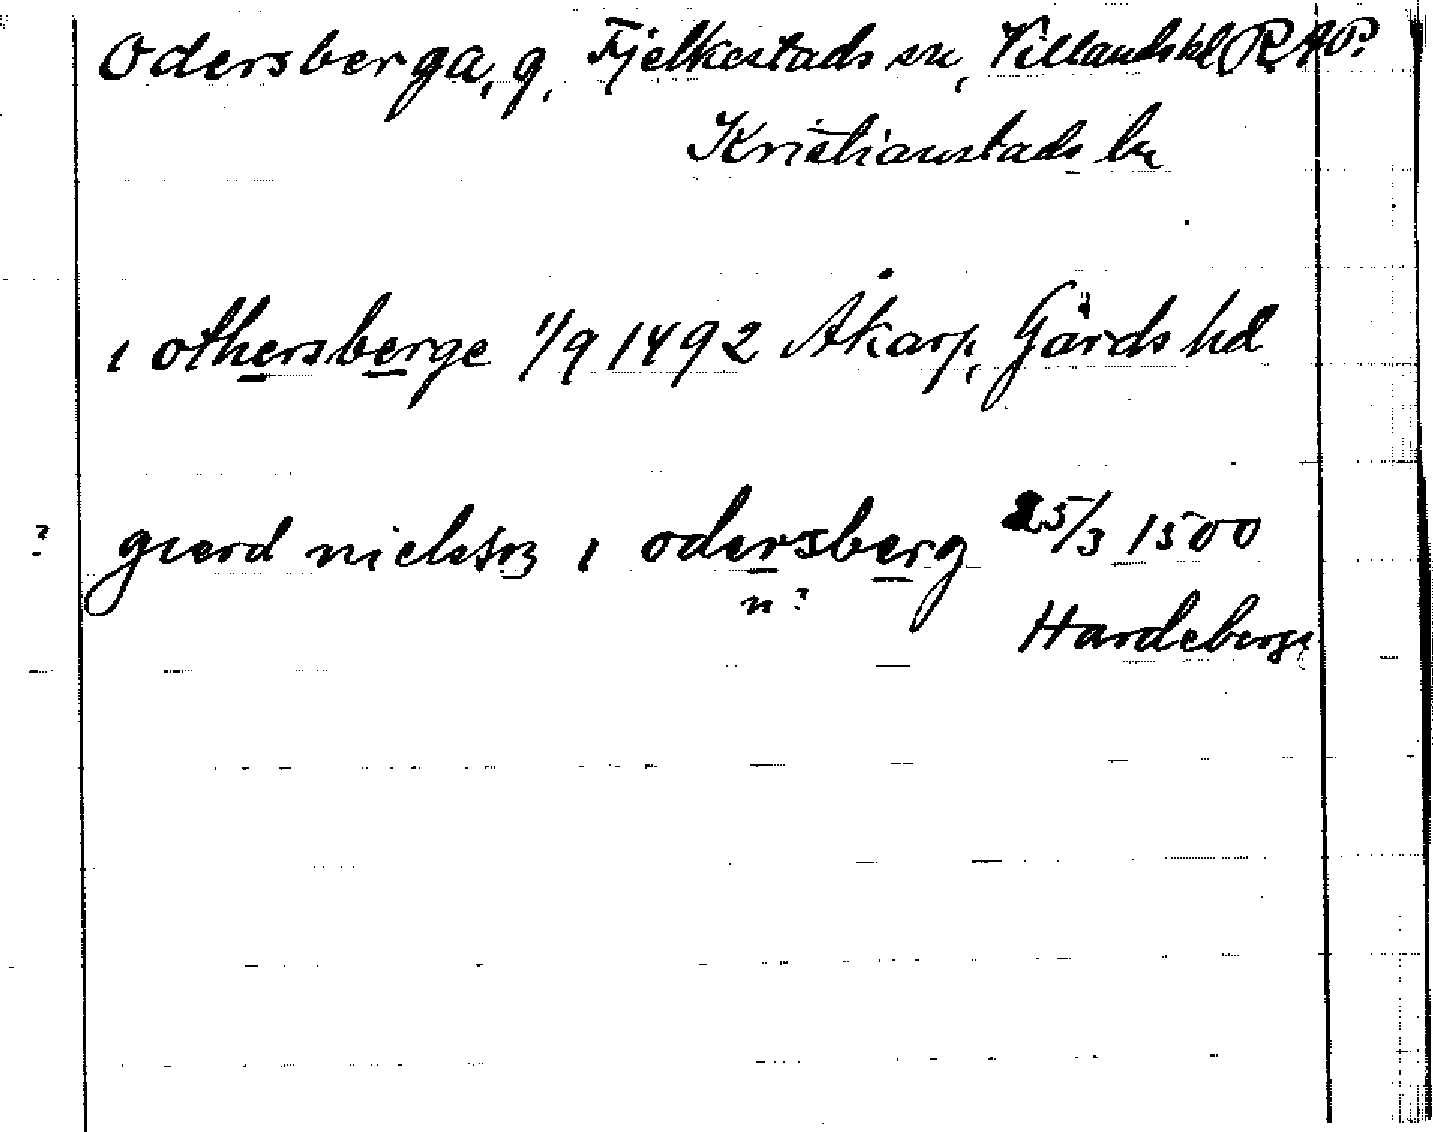 Odersberga, g, Fjelkestads sn, Villands hd
Kristianstads ln
ı othersberge 1/9 1492 Åkarp, Gärds hd
? gierd nielssøn ı odersberg 25/3 1500
n?
Hardeberga